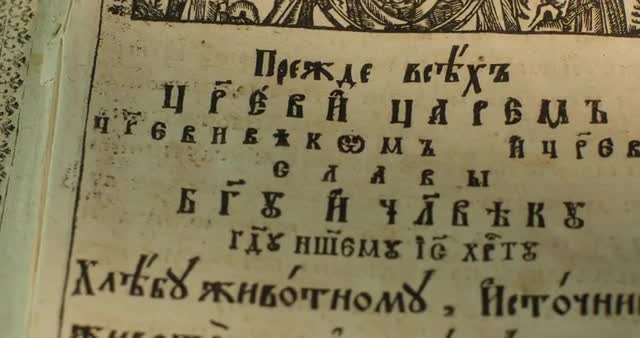 Прежде всѣ́хъ
Ц р҃е́ви́ ц а р е м ъ
ч р҃е в и в ѣ к ѡ м ъ и́ ц р҃е в
с л а в ы
Б г҃ꙋ и́ ч л҃в ѣ к ꙋ
гдⷭ҇ꙋ нш҃емꙋ і҆с҃ хрⷭ҇тꙋ
Хлѣ́бꙋ живо́тномꙋ , И҆сто́чни